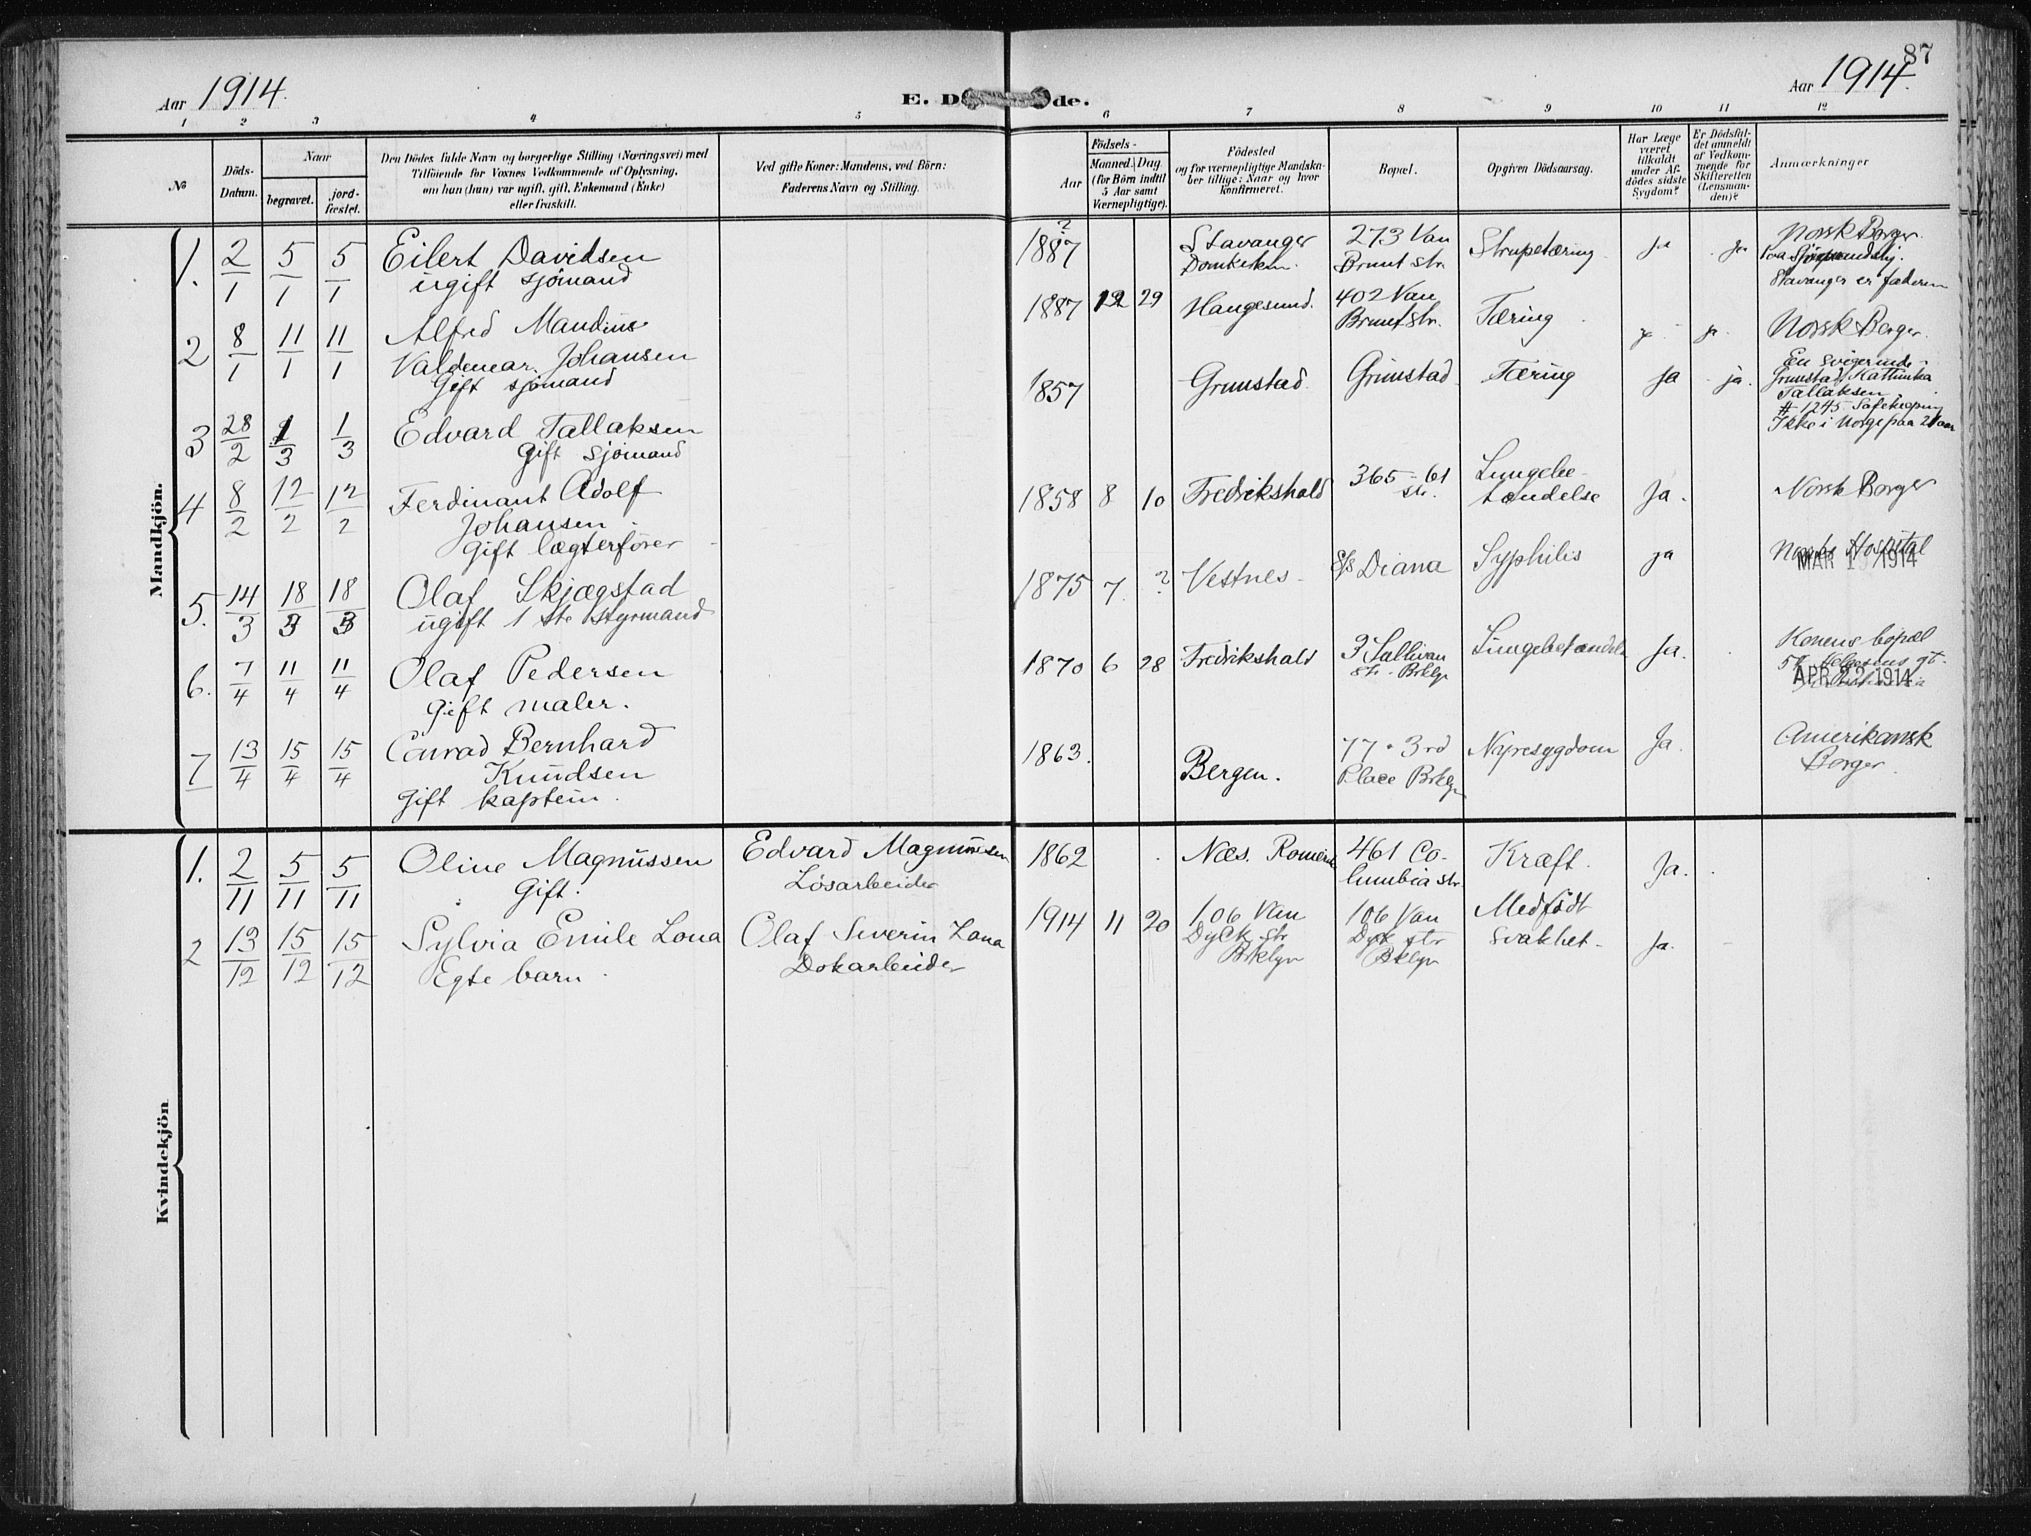 87
Aar 1914.
E. D de.
Aar 1914.
1 2 3 4 5 6 7 8 9 10 11 12
No
Döds-
Datum.
Naar
begravet.
jord-
fæstet.
Den Dödes fulde Navn og borgerlige Stilling (Næringsvei) med
Tilföiende for Voxnes Vedkommende af Oplysning,
om han (hun) var ugift, gift, Enkemand (Enke)
eller fraskilt.
Ved gifte Koner: Mandens, ved Börn:
Faderens Navn og Stilling.
Födsels-
Aar
Maaned. Dag
(for Börn indtil
5 Aar samt
Værnepligtige).
Födested
og for værnepligtige Mandska-
ber tillige: Naar og hvor
Konfirmeret.
Bopæl.
Opgiven Dödsaarsag.
Har Læge
været
tilkaldt
under Af-
dödes sidste
Sygdom?
Er Dödsfal-
det anmeldt
af Vedkom-
mende for
Skifteretten
(Lensman-
den)?
Anmærkninger
Mandkjön.
1. 2/1 5/1 5/1 Eilert Davidsen
ugift sjömand
1887 ? Stavanger
Domkirken.
273 Van
Brunt str.
Strupetæring ja ja
Norsk Borger.
Stavanger er faderen
2 8/1 11/1 11/1 Alfred Mandius
Valdemar Johansen
Gift sjömand
1887 12 29 Haugesund. 402 Van
Brunt str.
Tæring
Norsk Borger.
3 28/2 1/3 1/3 Edvard Tallaksen
Gift sjömand
1857 Grimstad Grimstad Tæring ja ja.
En svigerinde
Grimstad Kathinka
Tallaksen
# 1245 Safekeeping
Ikke i Norge paa 21 aar
4 8/2 12/2 12/2 Ferdinant Adolf
Johansen
Gift lægterfører
1858 8 10 Fredrikshald 365 - 61
str.
Lungebe-
tændelse
Ja.
Norsk Borger
5. 14/3 18/3 18/3 Olaf Skjægstad
ugift 1ste styrmand
1875 7 ? Vestnes S/S Diana Syphilis ja
Norske Hospital
MAR 1 1914
6. 7/4 11/4 11/4 Olaf Pedersen
Gift maler.
1870 6 28 Fredrikshald 3 Sullivan
str. Brklyn
Lungebetændelse Ja.
Konens bopæl
APR 22 1914
7 13/4 15/4 15/4 Conrad Bernhard
Knudsen
Gift kaptein.
1863. Bergen. 77 - 3rd
Place Brklyn
Nyresygdom Ja.
Amerikansk
Borger.
Kvindekjön
1. 2/11 5/11 5/11 Oline Magnussen
Gift.
Edvard Magnussen
Lösarbeider
1862 Næs. Romerike 461 Co-
lumbia str.
Kræft. Ja.
2 13/12 15/12 15/12 Sylvia Emilie Lona
Egte barn.
Olaf Severin Lona
Dokarbeider
1914 11 20 106 Van
Dyck str
Brklyn
106 Van
Dyck str
Brklyn
Medfödt
svakhet. Ja.